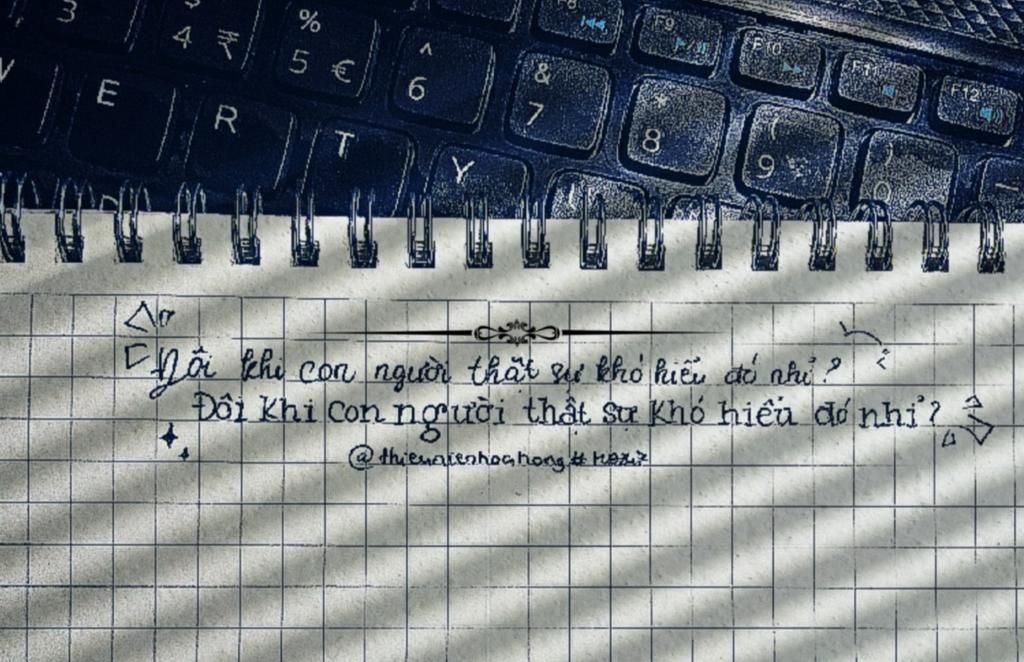 3 $ % ^ & * ( )
4 ₹ 5 € 6 7 8 9 0
F8 F9 F10 F11 F12
E R T Y
Đôi khi con người thật sự khó hiểu đó nhỉ?
Đôi khi con người thật sự khó hiểu đó nhỉ?